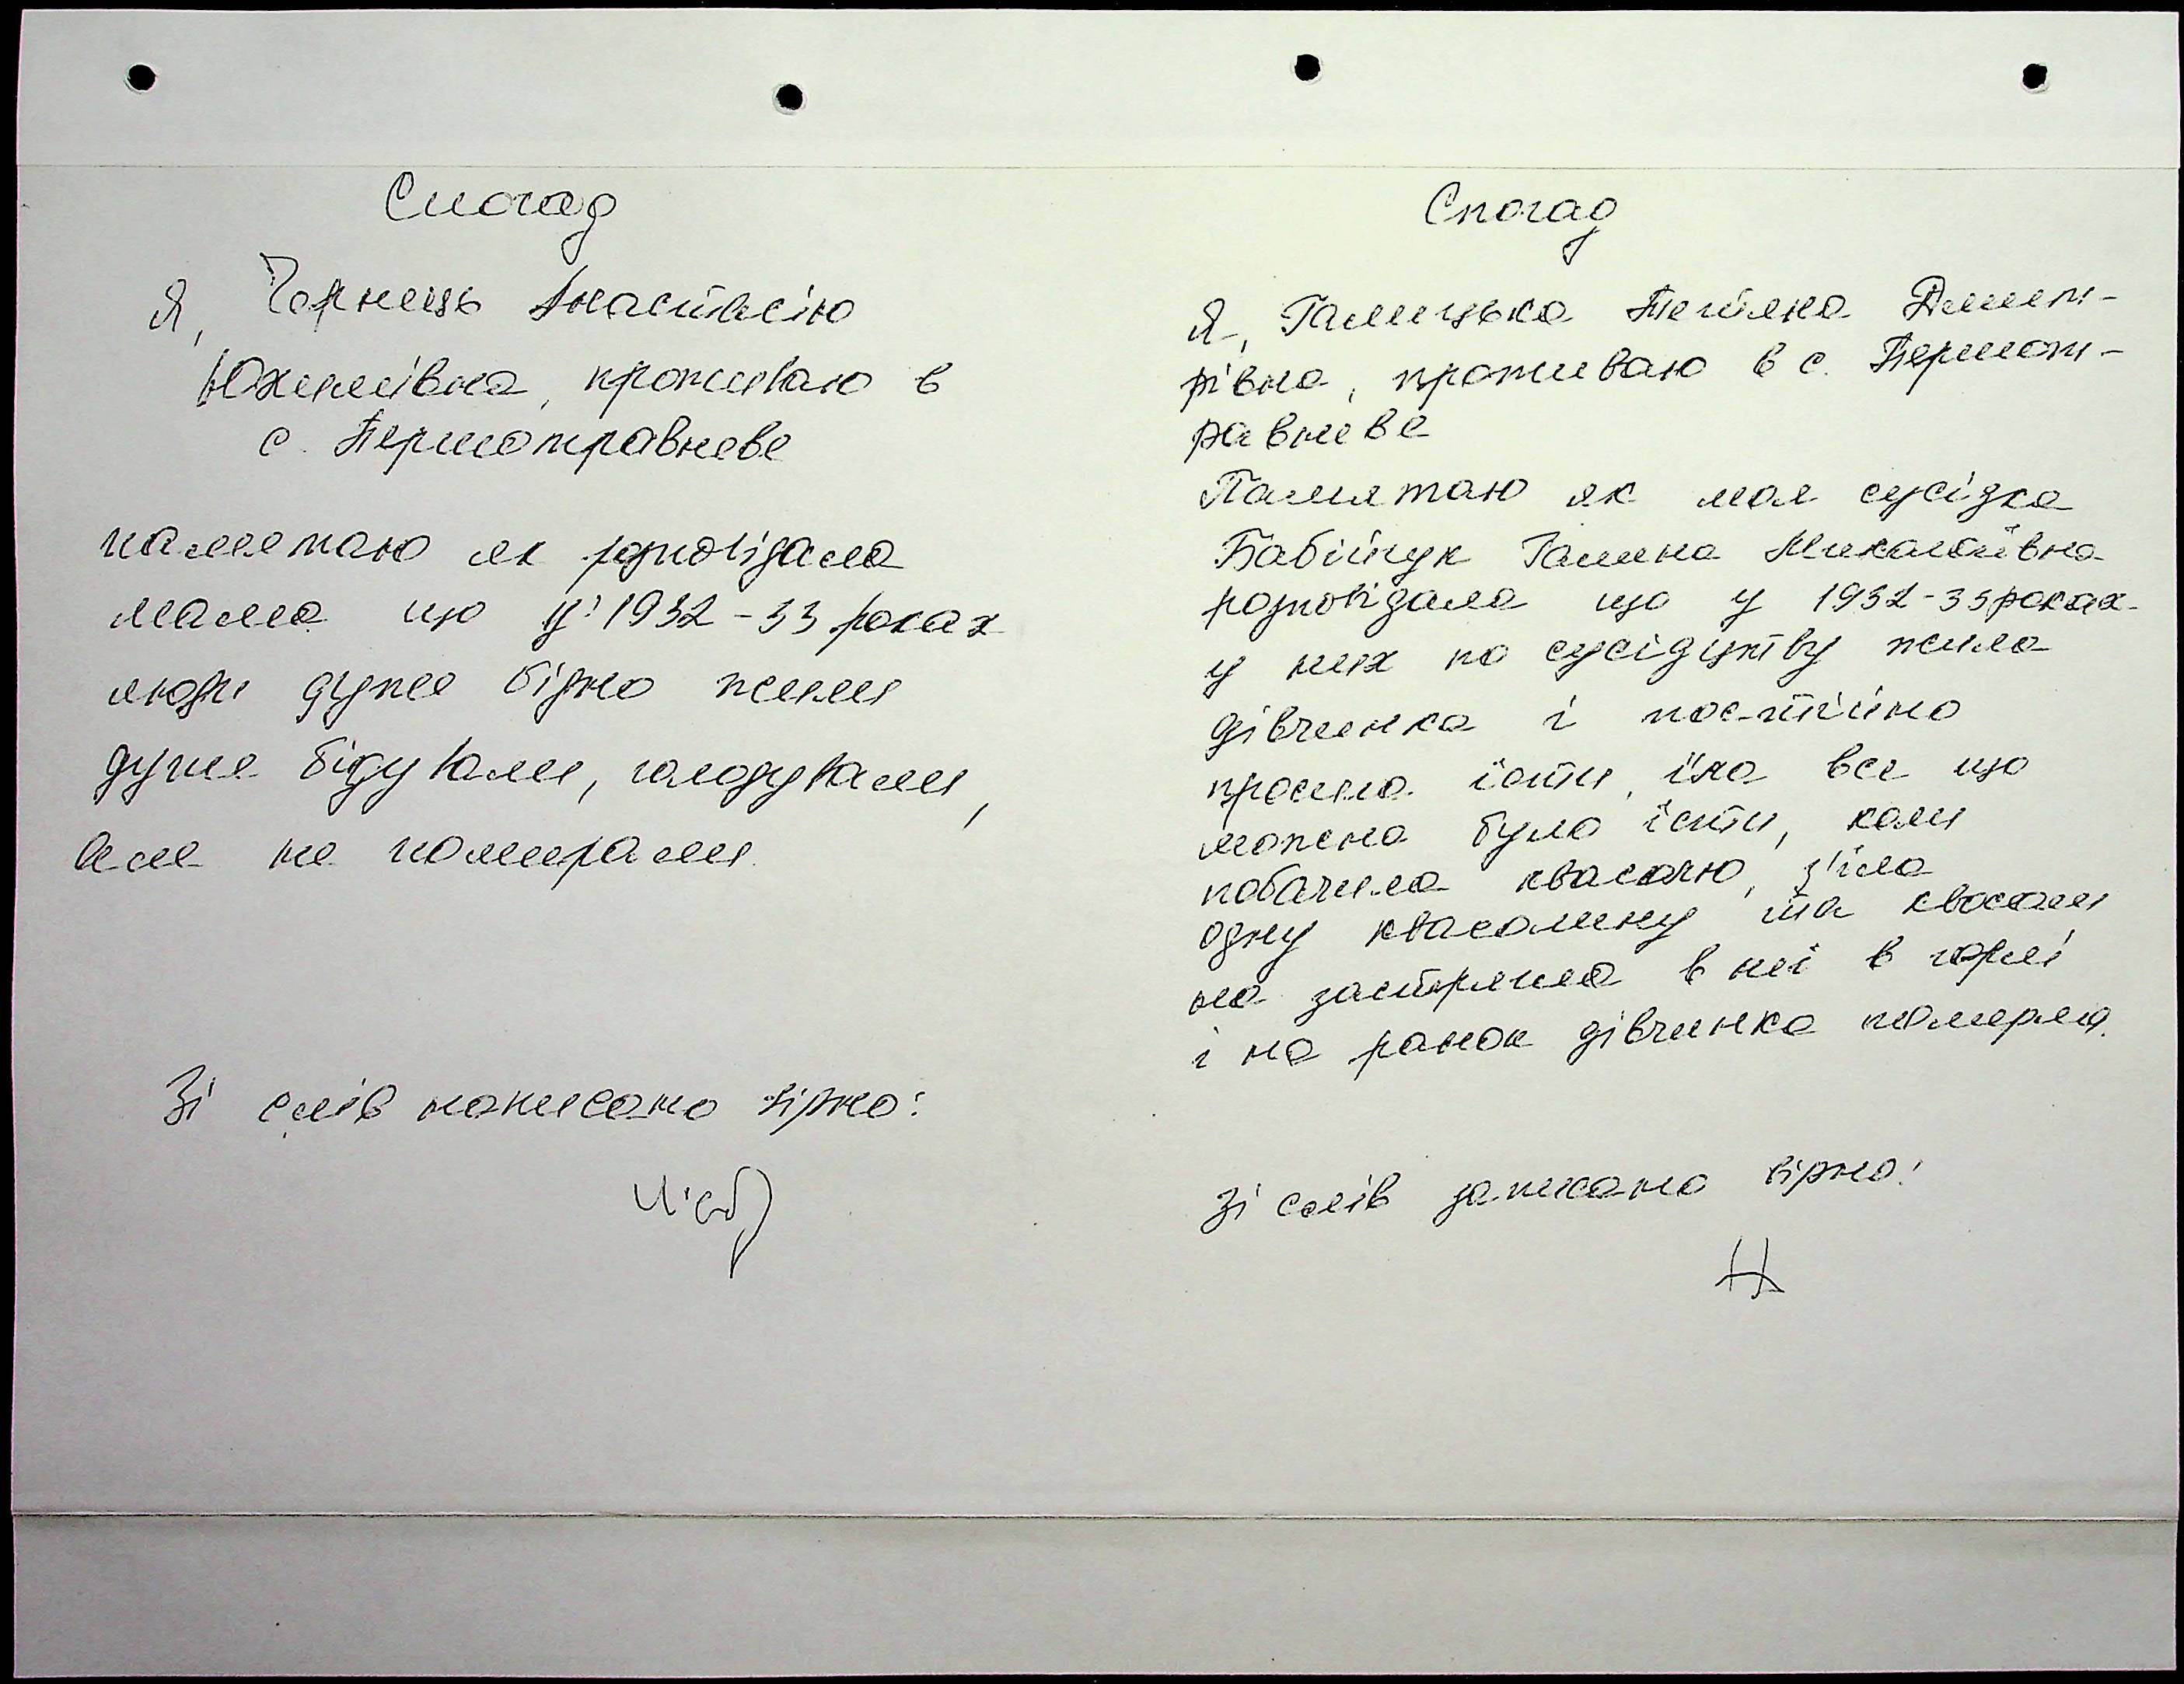 Спогад
Я, Чернець Анастасію
Юхимівна, проживаю в
с. Першотравневе
памятаю як розповідала
мама що у 1932-33 роках
люди дуже бідно жили
дуже бідували, голодували,
але не помирали.
Зі слів написано вірно:
Спогад
Я, Галицька Тетяна Дмит-
рівна, проживаю в с. Першот-
равневе
Памятаю як моя сусідка
Бабійчук Галина Михайлівна
розповідала що у 1932-33 роках
у них по сусідцтву жила
дівчинка і постійно
просила їсти, їла все що
можна було їсти, коли
побачила квасолю, з'їла
одну квасолину та квасоли
на застряла в неї в горлі
і на ранок дівчинка померла.
Зі слів записано вірно: